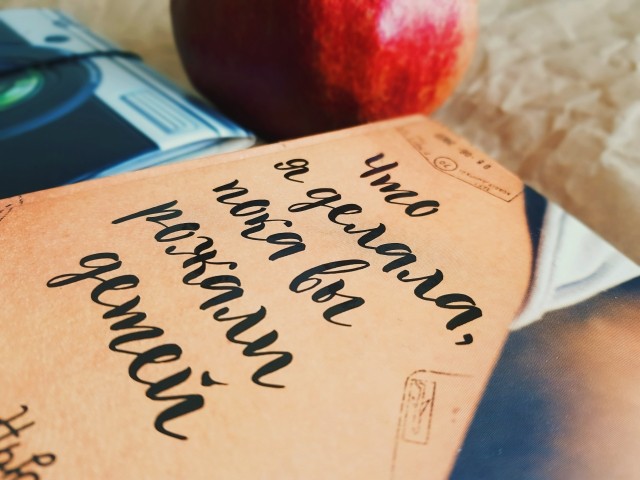 Что
я делала,
пока вы
рожали
детей